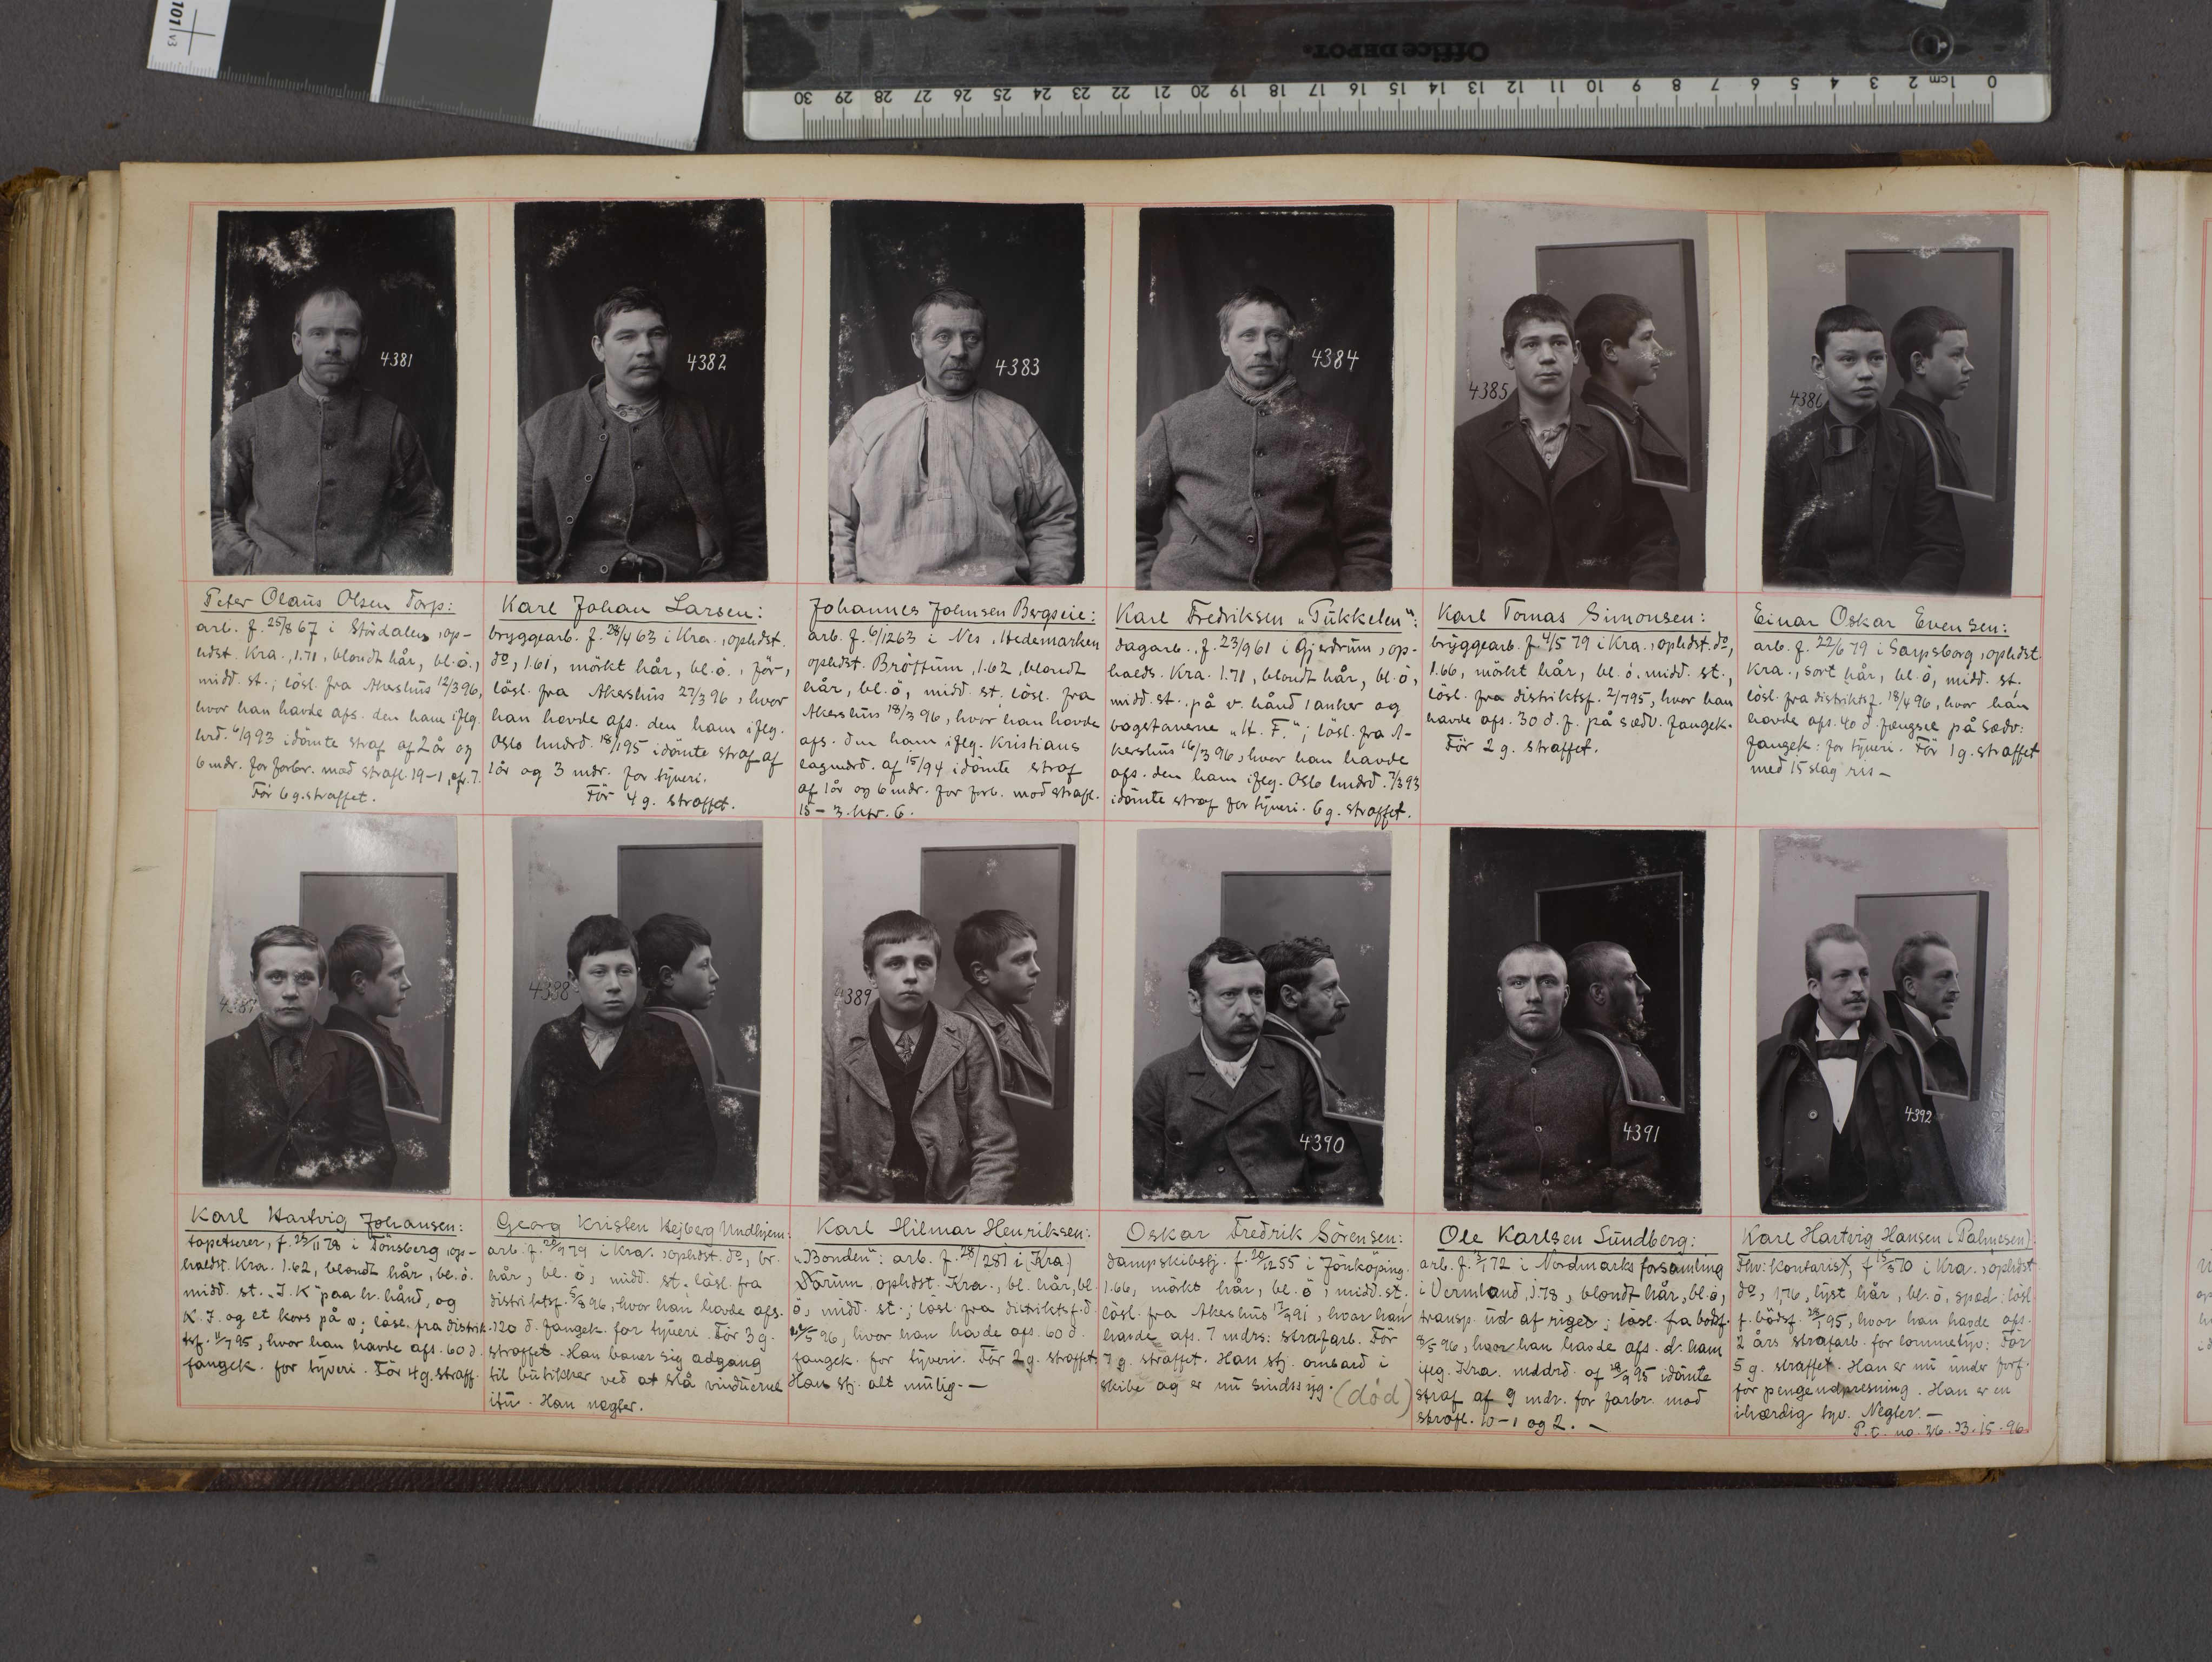 101 v3
Office DEPOT.
30 29 28 27 26 25 24 23 22 21 20 19 18 17 16 15 14 13 12 11 10 9 8 7 6 5 4 3 2 1cm 0
4381
Peter Olaus Olsen Torp:
arb. f. 25/8 67 i Stördalen, op-
hdst. Kra., 1.71, blondt hår, bl. ö.,
midd. st.; lösl. fra Akershus 12/3 96,
hvor han havde afs. den ham iflg.
hrd. 6/1 93 idömte straf af 2 år og
6 mdr. for forbr. mod strafl. 19-1, cfr. 7.
För 6 g. straffet.
4382
Karl Johan Larsen:
bryggearb. f. 28/4 63 i Kra., ophdst.
do, 1.61, mörkt hår, bl. ö., för,
lösl. fra Akershus 27/3 96, hvor
han havde afs. den ham iflg.
Oslo lmdrd. 18/1 95 idömte straf af
1 år og 3 mdr. for tyveri.
För 4 g. straffet.
4383
Johannes Johnsen Bergseie:
arb. f. 6/12 63 i Nes, Hedemarken
ophdst. Bröttum, 1.62, blondt
hår, bl. ö, midd. st. lösl. fra
Akershus 18/3 96, hvor han havde
afs. den ham iflg. Kristians
lagmdrd. af 15/ 94 idömte straf
af 1 år og 6 mdr. for forb. mod strafl.
15 - 3. 6.
4384
Karl Fredriksen „Pukkelen":
dagarb., f. 23/9 61 i Gjerdrum, op-
holds. Kra. 1.71, blondt hår, bl. ö,
midd. st., på v. hånd 1 anker og
bogstaverne „K. F."; lösl. fra A-
kershus 16/3 96, hvor han havde
afs. den ham iflg. Oslo lmdrd. 7/3 93
idömte straf for tyveri. 6 g. straffet.
4385
Karl Tomas Simonsen:
bryggearb. f. 4/5 79 i Kra., ophdst. do,
1.66, mörkt hår, bl. ö. midd. st.,
lösl. fra distriktsf. 2/7 95, hvor han
havde afs. 30 d. f. på sædv. fangek.
För 2 g. straffet.
4386
Einar Oskar Evensen:
arb. f. 22/6 79 i Sarpsborg, ophdst.
Kra., sort hår, bl. ö, midd. st.
lösl. fra distriktsf. 18/4 96, hvor han
havde afs. 40 d. fængsel på sædv:
fangek: for tyveri. För 1 g. straffet
med 15 slag ris -
4387
Karl Hartvig Johansen:
tapetserer, f. 25/11 78 i Tönsberg, op-
holdst. Kra. 1.62, blondt hår, bl. ö.
midd. st. „I. K" paa h. hånd, og
K. J. og et kors på v; lösl. fra distrik-
tsf. 11/7 95, hvor han havde afs. 60 d.
fangek. for tyveri. För 4 g. straff.
4388
Georg Kristen Hejberg Undhjem:
arb. f. 20/1 79 i Kra. ophdst. do, br.
hår, bl. ö, midd. st. lösl. fra
distriktsf. 5/8 96, hvor han havde afs.
120 d. fangek. for tyveri. För 3 g.
straffet. Han baner sig adgang
til butikker ved at slå vinduerne
itu. Han negter.
4389
Karl Hilmar Henriksen:
„Bonden": arb. f. 28/2 81 i (Kra)
Närum, ophdst. Kra., bl. hår, bl.
ö, midd. st.; lösl. fra distriktsf. d.
22/5 96, hvor han havde afs. 60 d.
fangek. for tyveri. För 2 g. straffet.
Han stj. alt mulig. -
4390
Oskar Fredrik Sörensen:
dampskibstj. f. 20/12 55 i Jönköping.
1.66, mörkt hår, bl. ö, midd. st.
lösl. fra Akershus 17/9 91, hvor han
havde afs. 7 mdrs: strafarb. För
7 g. straffet. Han stj. ombord i
skibe og er nu sindssyg. (död)
4391
Ole Karlsen Sundberg:
arb. f. 3/1 72 i Nordmarks forsamling
i Vermland, 1.78, blondt hår, bl. ö,
transp. ud af riget; lösl. fra bodsf.
8/5 96, hvor han havde afs. d. ham
iflg. Kra. mddrd. af 28/9 95 idömte
straf af 9 mdr. for forbr. mod
strafl. 10-1 og 2. -
4392
Karl Hartvig Hansen (Palmesen):
Fhv: kontorist, f. 15/3 70 i Kra., ophdst
do, 1,76, lyst hår, bl. ö, sped; lösl
f. bödsf. 28/1 95, hvor han havde afs.
2 års strafarb. for lommetyv; För
5 g. straffet. Han er nu under forf.
for pengeudpresning. Han er en
ihærdig tyv. Negter. -
P. t. no. 26. B. 15 - 96.